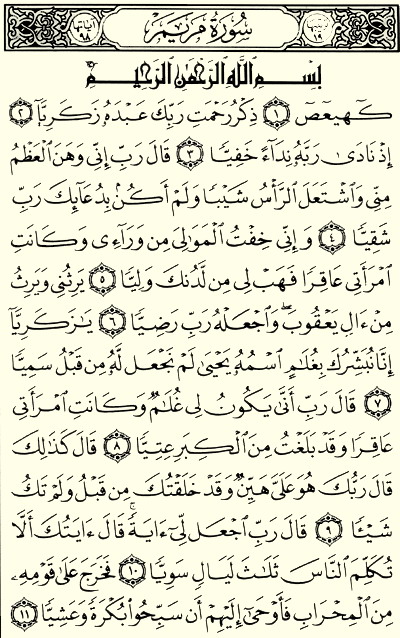 سُورَةُ مَرْيَمَ
بِسْمِ اللَّهِ الرَّحْمَٰنِ الرَّحِيمِ
كٓهيعٓصٓ ١ ذِكْرُ رَحْمَتِ رَبِّكَ عَبْدَهُۥ زَكَرِيَّآ ٢
إِذْ نَادَىٰ رَبَّهُۥ نِدَآءً خَفِيًّا ٣ قَالَ رَبِّ إِنِّى وَهَنَ ٱلْعَظْمُ
مِنِّى وَٱشْتَعَلَ ٱلرَّأْسُ شَيْبًا وَلَمْ أَكُنۢ بِدُعَآئِكَ رَبِّ
شَقِيًّا ٤ وَإِنِّى خِفْتُ ٱلْمَوَٰلِىَ مِن وَرَآءِى وَكَانَتِ
ٱمْرَأَتِى عَاقِرًا فَهَبْ لِى مِن لَّدُنكَ وَلِيًّا ٥ يَرِثُنِى وَيَرِثُ
مِنْ ءَالِ يَعْقُوبَ ۖ وَٱجْعَلْهُ رَبِّ رَضِيًّا ٦ يَٰزَكَرِيَّآ
إِنَّا نُبَشِّرُكَ بِغُلَٰمٍ ٱسْمُهُۥ يَحْيَىٰ لَمْ نَجْعَل لَّهُۥ مِن قَبْلُ سَمِيًّا
٧ قَالَ رَبِّ أَنَّىٰ يَكُونُ لِى غُلَٰمٌ وَكَانَتِ ٱمْرَأَتِى
عَاقِرًا وَقَدْ بَلَغْتُ مِنَ ٱلْكِبَرِ عِتِيًّا ٨ قَالَ كَذَٰلِكَ
قَالَ رَبُّكَ هُوَ عَلَىَّ هَيِّنٌ وَقَدْ خَلَقْتُكَ مِن قَبْلُ وَلَمْ تَكُ
شَيْـًٔا ٩ قَالَ رَبِّ ٱجْعَل لِّىٓ ءَايَةً ۚ قَالَ ءَايَتُكَ أَلَّا
تُكَلِّمَ ٱلنَّاسَ ثَلَٰثَ لَيَالٍ سَوِيًّا ١٠ فَخَرَجَ عَلَىٰ قَوْمِهِۦ
مِنَ ٱلْمِحْرَابِ فَأَوْحَىٰٓ إِلَيْهِمْ أَن سَبِّحُوا۟ بُكْرَةً وَعَشِيًّا ١١